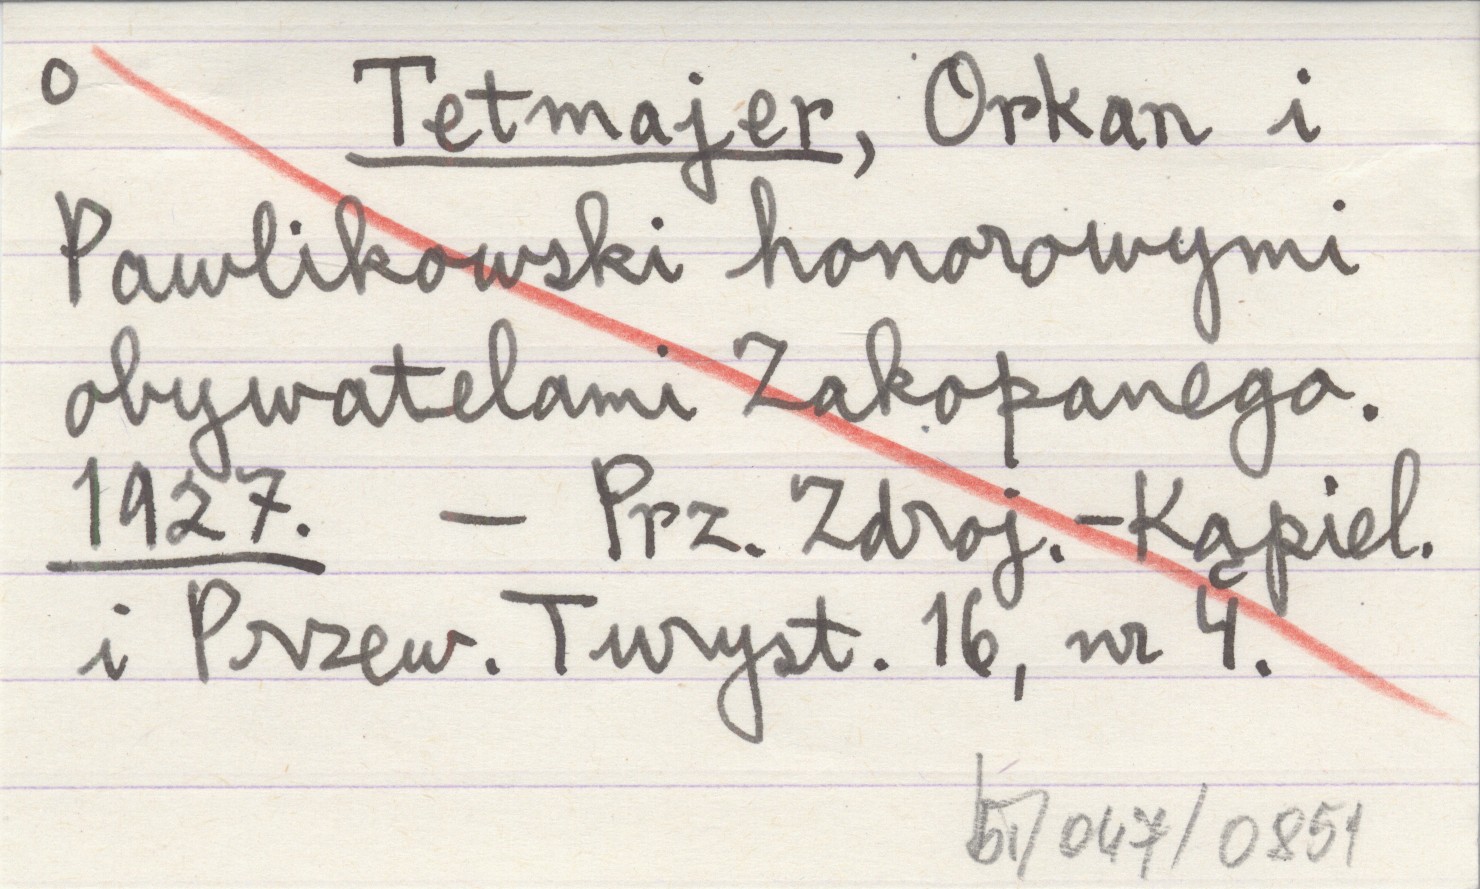 o Tetmajer, Orkan i
Pawlikowski honorowymi
obywatelami Zakopanego.
1927. — Prz. Zdroj.-Kąpiel.
i Przew. Turyst. 16, nr 4.
/047/0851